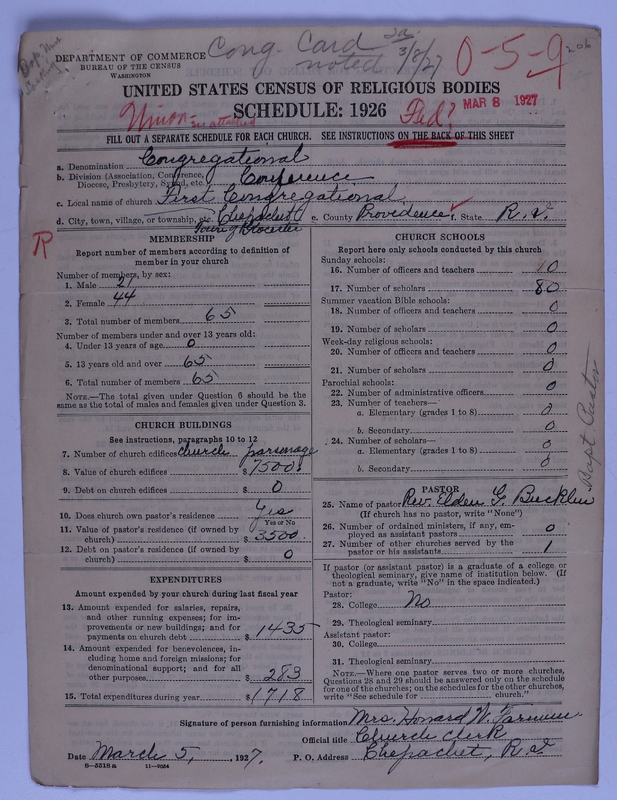 DEPARTMENT OF COMMERCE
BUREAU OF THE CENSUS
WASHINGTON
Cong. Card
noted 3/8/27
0-5-9
206
UNITED STATES CENSUS OF RELIGIOUS BODIES
SCHEDULE: 1926
Union- see attached
Fed?
MAR 8 1927
FILL OUT A SEPARATE SCHEDULE FOR EACH CHURCH. SEE INSTRUCTIONS ON THE BACK OF THIS SHEET
a. Denomination Congregational
b. Division (Association, Conference, Diocese, Presbytery, Synod, etc.) Conference
c. Local name of church First Congregational
d. City, town, village, or township, etc. Chepachet e. County Providence f. State R. I.
R
MEMBERSHIP
Report number of members according to definition of
member in your church
Number of members, by sex:
1. Male 21
2. Female 44
3. Total number of members 65
Number of members under and over 13 years old:
4. Under 13 years of age 0
5. 13 years old and over 65
6. Total number of members 65
NOTE.—The total given under Question 6 should be the
same as the total of males and females given under Question 3.
CHURCH BUILDINGS
See instructions, paragraphs 10 to 12
7. Number of church edifices church parsonage
8. Value of church edifices $ 7500
9. Debt on church edifices $ 0
10. Does church own pastor's residence Yes
Yes or No
11. Value of pastor's residence (if owned by
church) $ 3500
12. Debt on pastor's residence (if owned by
church) $ 0
EXPENDITURES
Amount expended by your church during last fiscal year
13. Amount expended for salaries, repairs,
and other running expenses; for im-
provements or new buildings; and for
payments on church debt $ 1435
14. Amount expended for benevolences, in-
cluding home and foreign missions; for
denominational support; and for all
other purposes $ 283
15. Total expenditures during year $ 1718
CHURCH SCHOOLS
Report here only schools conducted by this church
Sunday schools:
16. Number of officers and teachers 10
17. Number of scholars 80
Summer vacation Bible schools:
18. Number of officers and teachers 0
19. Number of scholars 0
Week-day religious schools:
20. Number of officers and teachers 0
21. Number of scholars 0
Parochial schools:
22. Number of administrative officers 0
23. Number of teachers—
a. Elementary (grades 1 to 8) 0
b. Secondary 0
24. Number of scholars—
a. Elementary (grades 1 to 8) 0
b. Secondary 0
Bapt Pastor
PASTOR
25. Name of pastor Rev. Elden G. Bucklin
(If church has no pastor, write "None")
26. Number of ordained ministers, if any, em-
ployed as assistant pastors 0
27. Number of other churches served by the
pastor or his assistants 1
If pastor (or assistant pastor) is a graduate of a college or
theological seminary, give name of institution below. (If
not a graduate, write "No" in the space indicated.)
Pastor:
28. College No
29. Theological seminary
Assistant pastor:
30. College
31. Theological seminary
NOTE.—Where one pastor serves two or more churches,
Questions 28 and 29 should be answered only on the schedule
for one of the churches; on the schedules for the other churches,
write "See schedule for church."
Signature of person furnishing information Mrs. Howard W. Farnum
Official title Church clerk
Date March 5, 1927. P. O. Address Chepachet, R. I.
8—5518a 11—9024